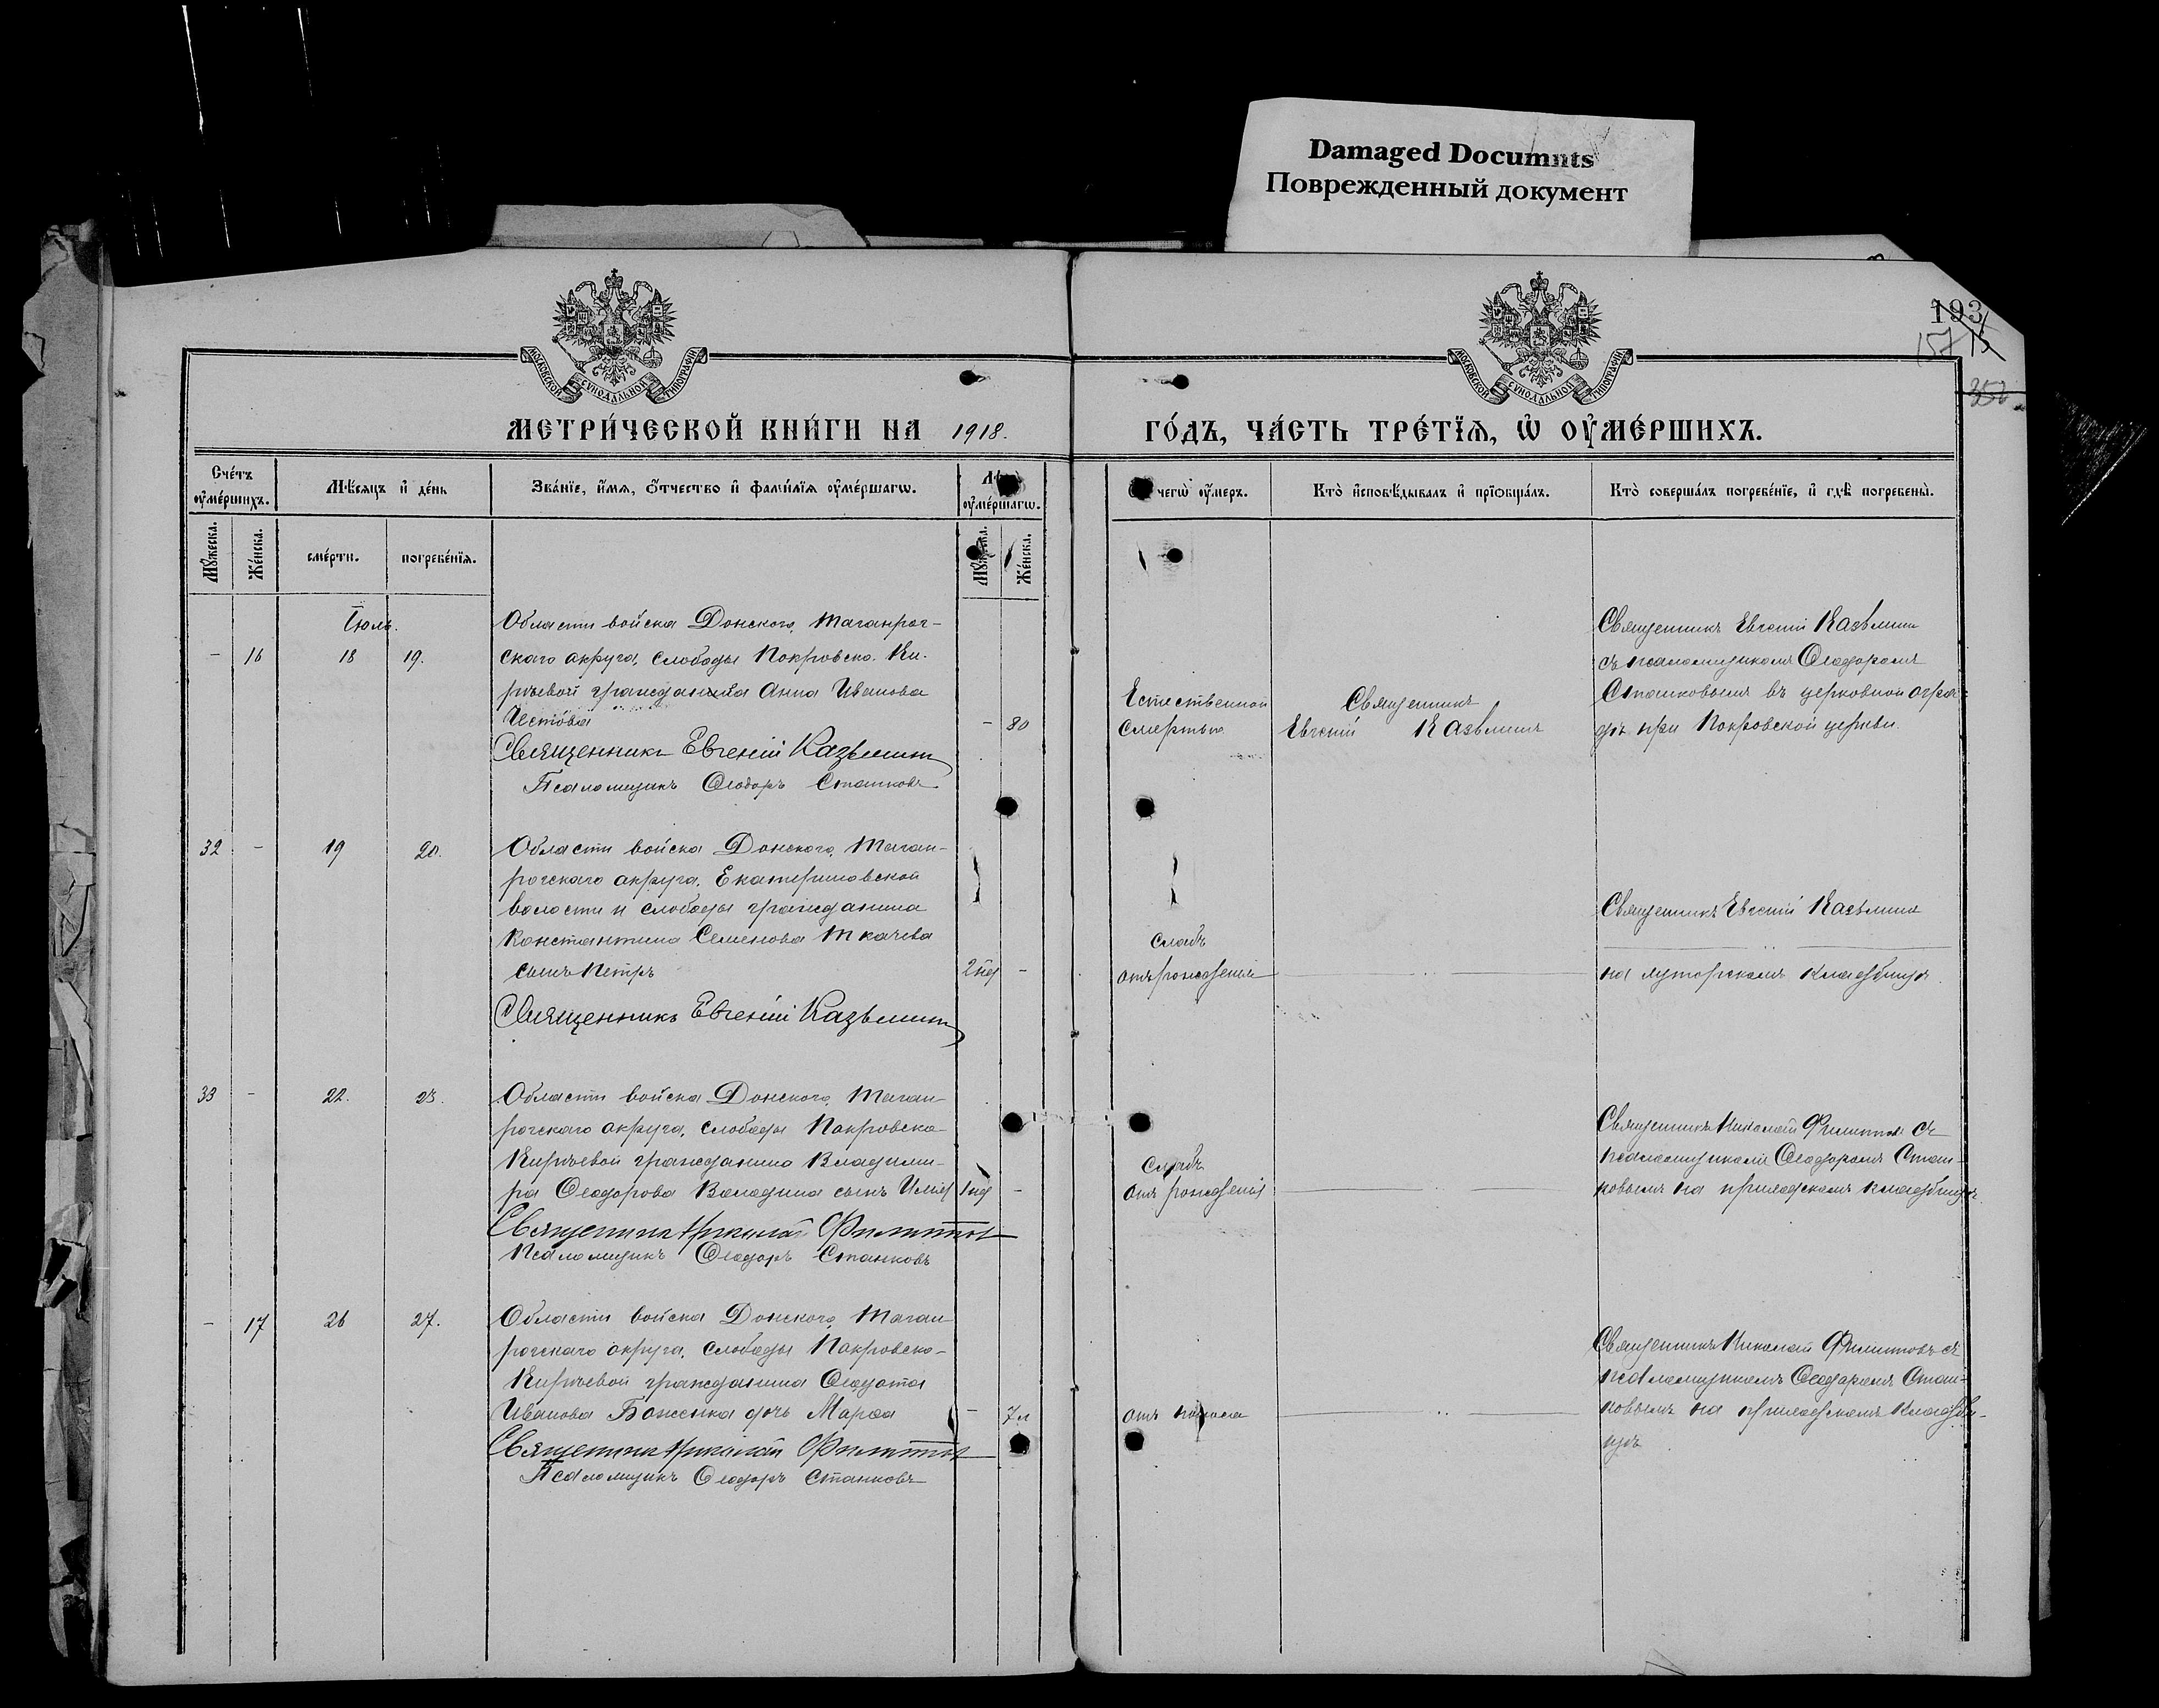 Damaged Documnts
Поврежденный документ
193
157
352
МОСКОВСКОЙ СѴНОДАЛЬНОЙ ТИПОГРАФІИ
МОСКОВСКОЙ СѴНОДАЛЬНОЙ ТИПОГРАФІИ
МЕТРИ́ЧЕСКОЙ КНИ́ГИ НА 1918.
ГО́ДЪ, ЧА́СТЬ ТРЕ́ТЇѦ, Ѡ ОУ҆МЕ́РШИХЪ.
Сче́тъ оу҆ме́ршихъ.
Мѣ́сяцъ и҆ де́нь
Зва́нїе, и҆́мѧ, ѻ҆́тчество и҆ фамѝлїѧ оу҆ме́ршагѡ.
оу҆ме́ршагѡ.
чегѡ̀ оу҆́меръ.
Кто̀ и҆сповѣ́дывалъ и҆ прїѡбща́лъ.
Кто̀ соверша́лъ погребе́нїе, и҆ гдѣ̀ погребены̀.
Мꙋ́жеска.
Же́нска.
сме́рти.
погребе́нїѧ.
Же́нска.
Іюль.
Области войска Донского, Таганрог-
- 16 18 19. скаго округа, слободы Покровско-Ки-
рѣевой гражданка Анна Иванова
- 80
Священникъ Евгеній Казьминъ
Псаломщикъ Ѳеодоръ Станковъ
Естественной
смертью
Священникъ
Евгеній Казьминъ
Священникъ Евгеній Казьминъ
съ псаломщикомъ Ѳеодоромъ
Станковымъ въ церковной огра-
дѣ при Покровской церкви.
32 - 19 20. Области войска Донского, Таган-
рогскаго округа, Екатериновской
волости и слободы гражданина
Константина Семенова Ткачева
сынъ Петръ 2 нед -
Священникъ Евгеній Казьминъ
Слабъ
отъ рожденія
Священникъ Евгеній Казьминъ
на хуторскомъ кладбищѣ.
33 - 22. 23. Области войска Донского, Таган-
рогскаго округа, слободы Покровско-
Кирѣевой гражданина Владими-
ра Ѳеодорова Володина сынъ Илія 1 нед -
Священникъ Николай Филиппов
Псаломщикъ Ѳеодоръ Станковъ
Слабъ
отъ рожденія
Священникъ Николай Филиппов съ
псаломщикомъ Ѳеодоромъ Стан-
ковымъ на приходскомъ кладбищѣ.
- 17 26 27. Области войска Донского, Таган-
рогскаго округа, слободы Покровско-
Кирѣевой гражданина Ѳеодота
Иванова Боженка дочь Марѳа - 7 м
Священникъ Николай Филиппов
Псаломщикъ Ѳеодоръ Станковъ
отъ поноса
Священникъ Николай Филипповъ съ
псаломщикомъ Ѳеодоромъ Стан-
ковымъ на приходскомъ кладби-
щѣ